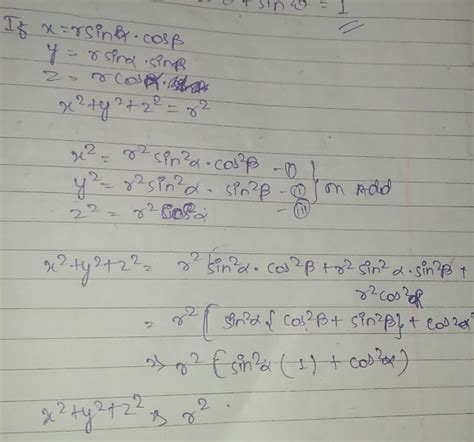 θ + sin²θ = 1
If x = r sinα · cosβ
y = r sinα · sinβ
z = r cosα
x² + y² + z² = r²
x² = r² sin²α · cos²β - (i)
y² = r² sin²α · sin²β - (ii) } on Add
z² = r² cos²α - (iii)
x² + y² + z² = r² sin²α · cos²β + r² sin²α · sin²β +
r² cos²α
= r² [ sin²α { cos²β + sin²β } + cos²α
⇒ r² ( sin²α ( 1 ) + cos²α )
x² + y² + z² ⇒ r² .